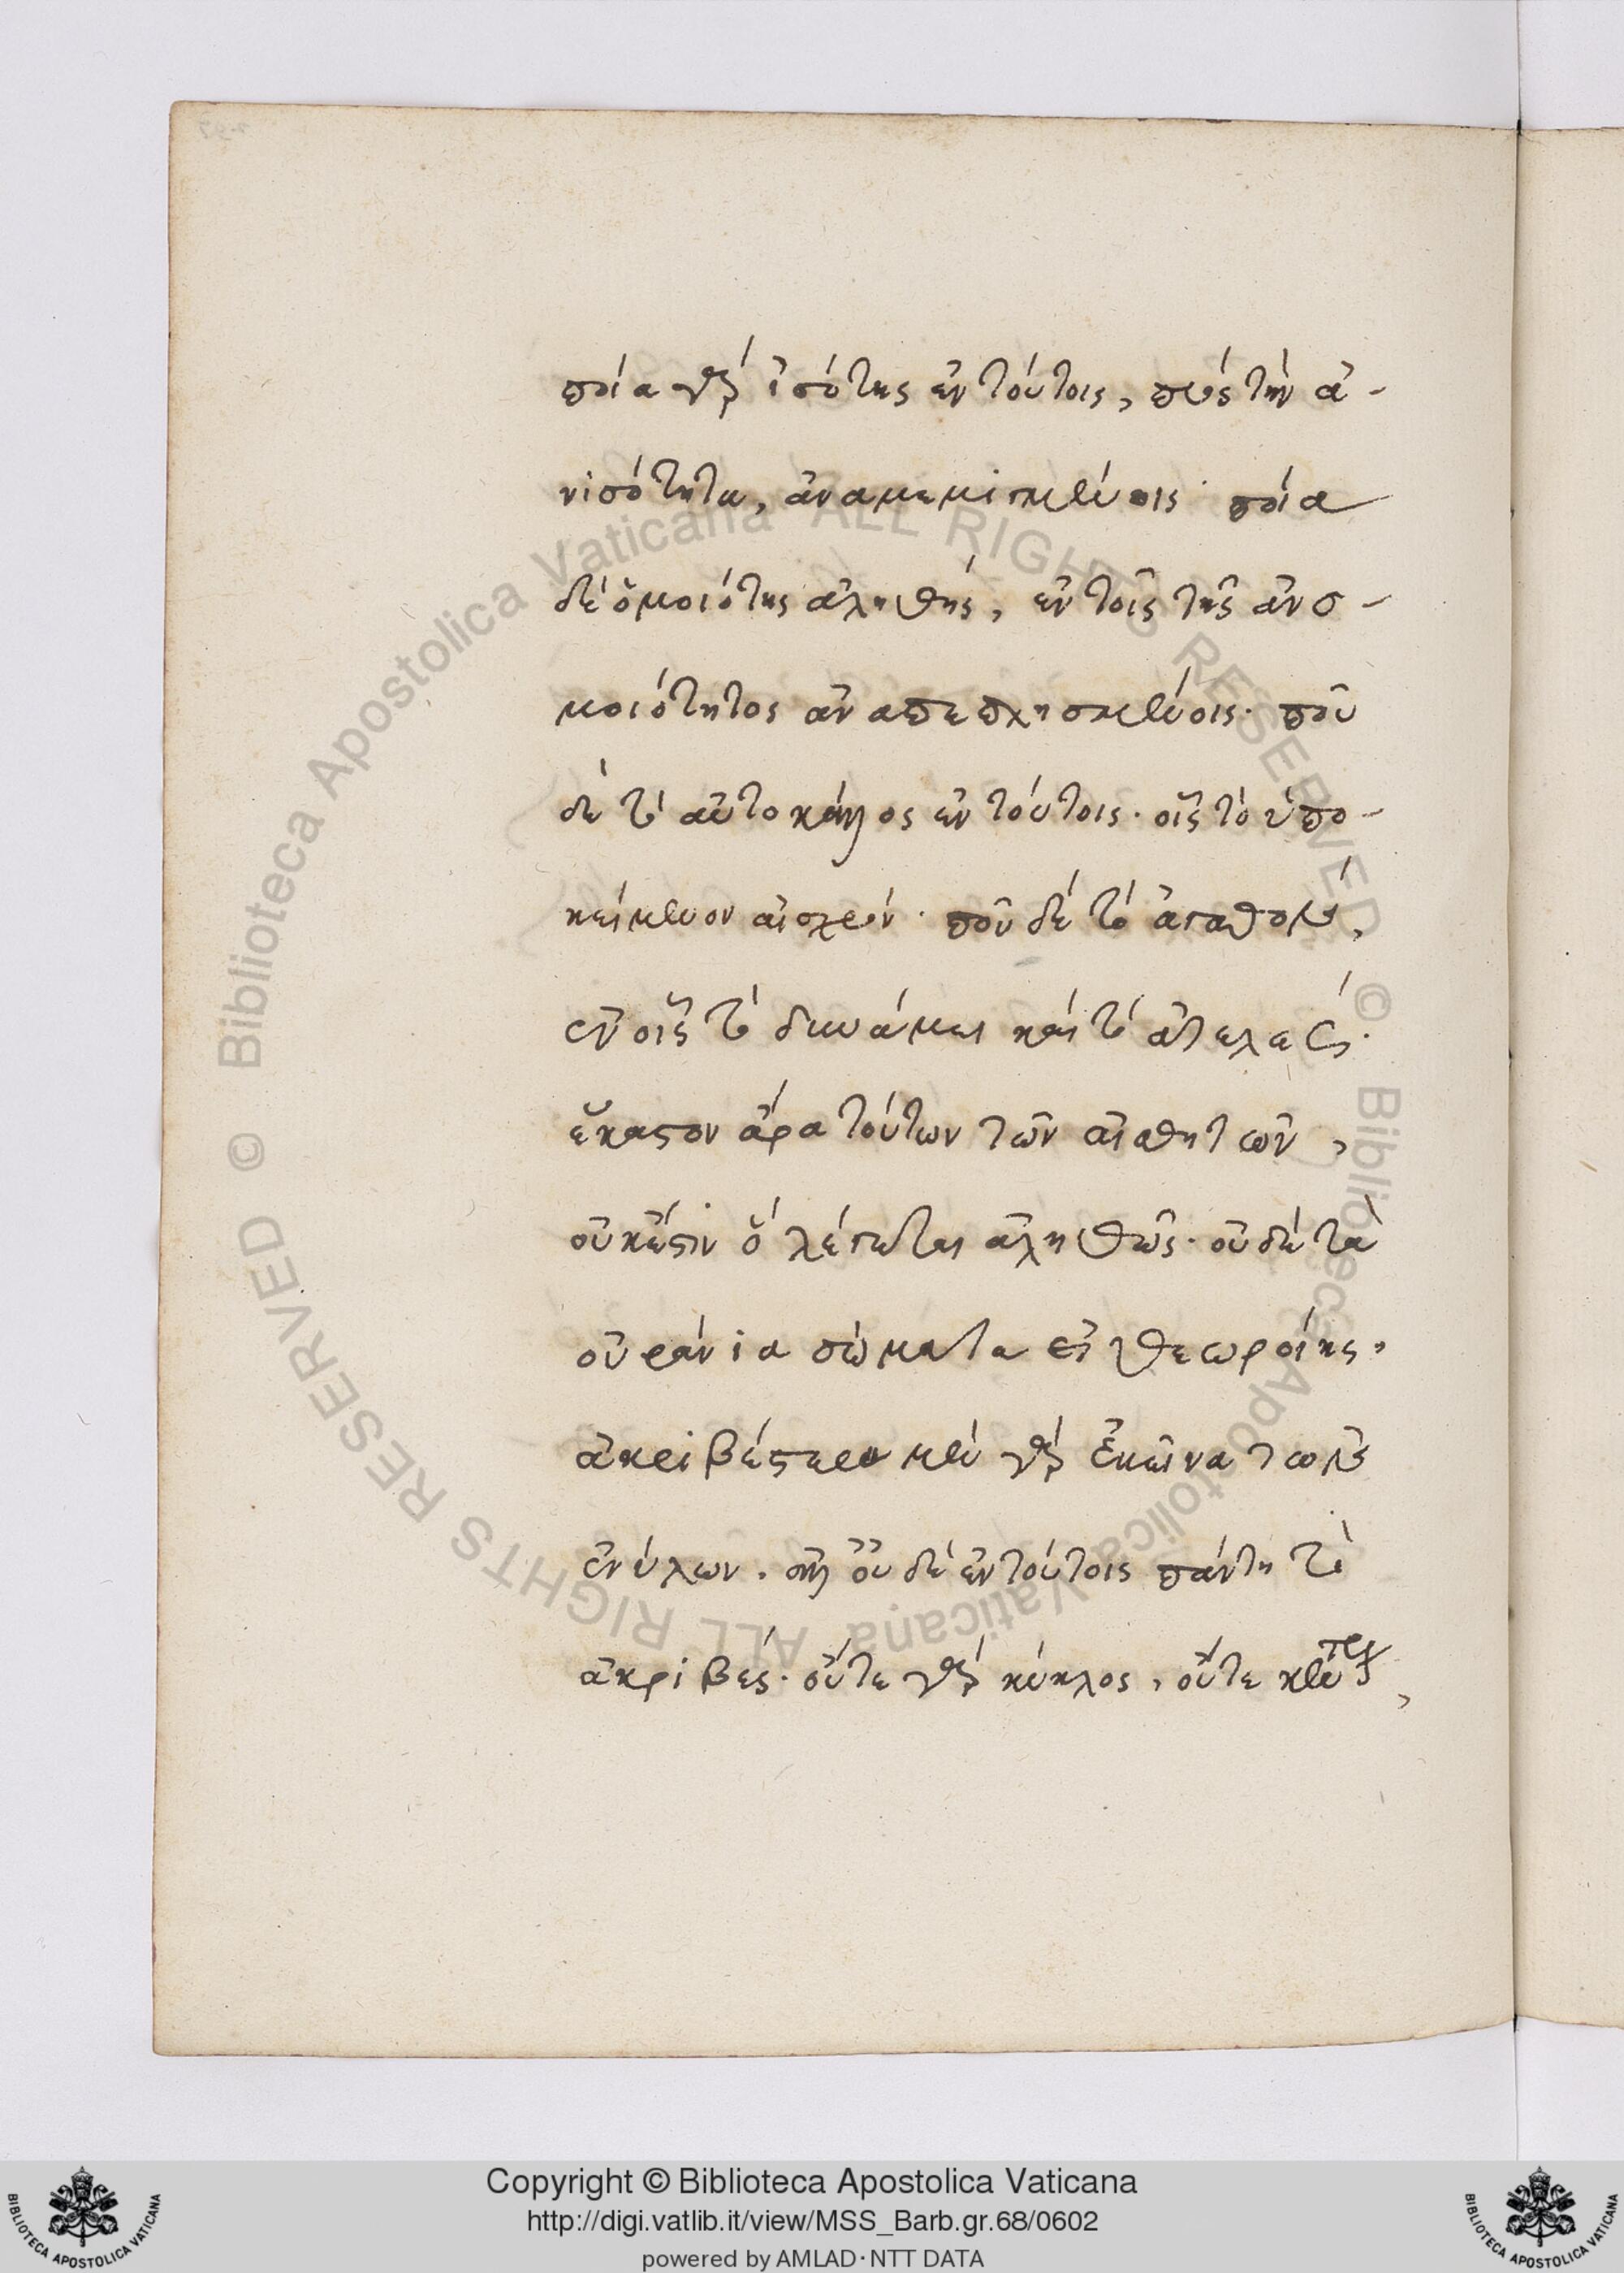 ποία γὰρ ἰσότης ἐν τούτοις, πρὸς τὴν ἀ-
νισότητα, ἀναμεμιγμένοις· ποία
δὲ ὁμοιότης ἀληθὴς, ἐν τοῖς τῆς ἀνο-
μοιότητος ἀναπεπλησμένοις· ποῦ
δὲ τὸ αὐτοκάλλος ἐν τούτοις· οἷς τὸ ὑπο-
κείμενον αἰσχρόν· ποῦ δὲ τὸ ἀγαθὸν,
ἐν οἷς τὸ δυνάμει καὶ τὸ ἀτελές·
ἕκαστον ἄρα τούτων τῶν αἰσθητῶν,
οὐκ ἔστιν ὃ λέγεται ἀληθῶς· οὐδὲ τὰ
οὐράνια σώματα εἰ θεωροίης,
ἀκριβέστερα μὲν γὰρ ἐκεῖνα τῶν
ἐνύλων. ἀλλ' οὐδὲ ἐν τούτοις πάντη τὸ
ἀκριβές· οὔτε γὰρ κύκλος, οὔτε κέντρον,
Biblioteca Apostolica Vaticana ALL RIGHTS RESERVED ©
Biblioteca Apostolica Vaticana ALL RIGHTS RESERVED ©
BIBLIOTECA APOSTOLICA VATICANA
Copyright © Biblioteca Apostolica Vaticana
http://digi.vatlib.it/view/MSS_Barb.gr.68/0602
powered by AMLAD·NTT DATA
BIBLIOTECA APOSTOLICA VATICANA